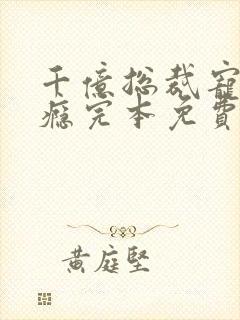 千億総裁寵
癮完本免費
黃庭堅